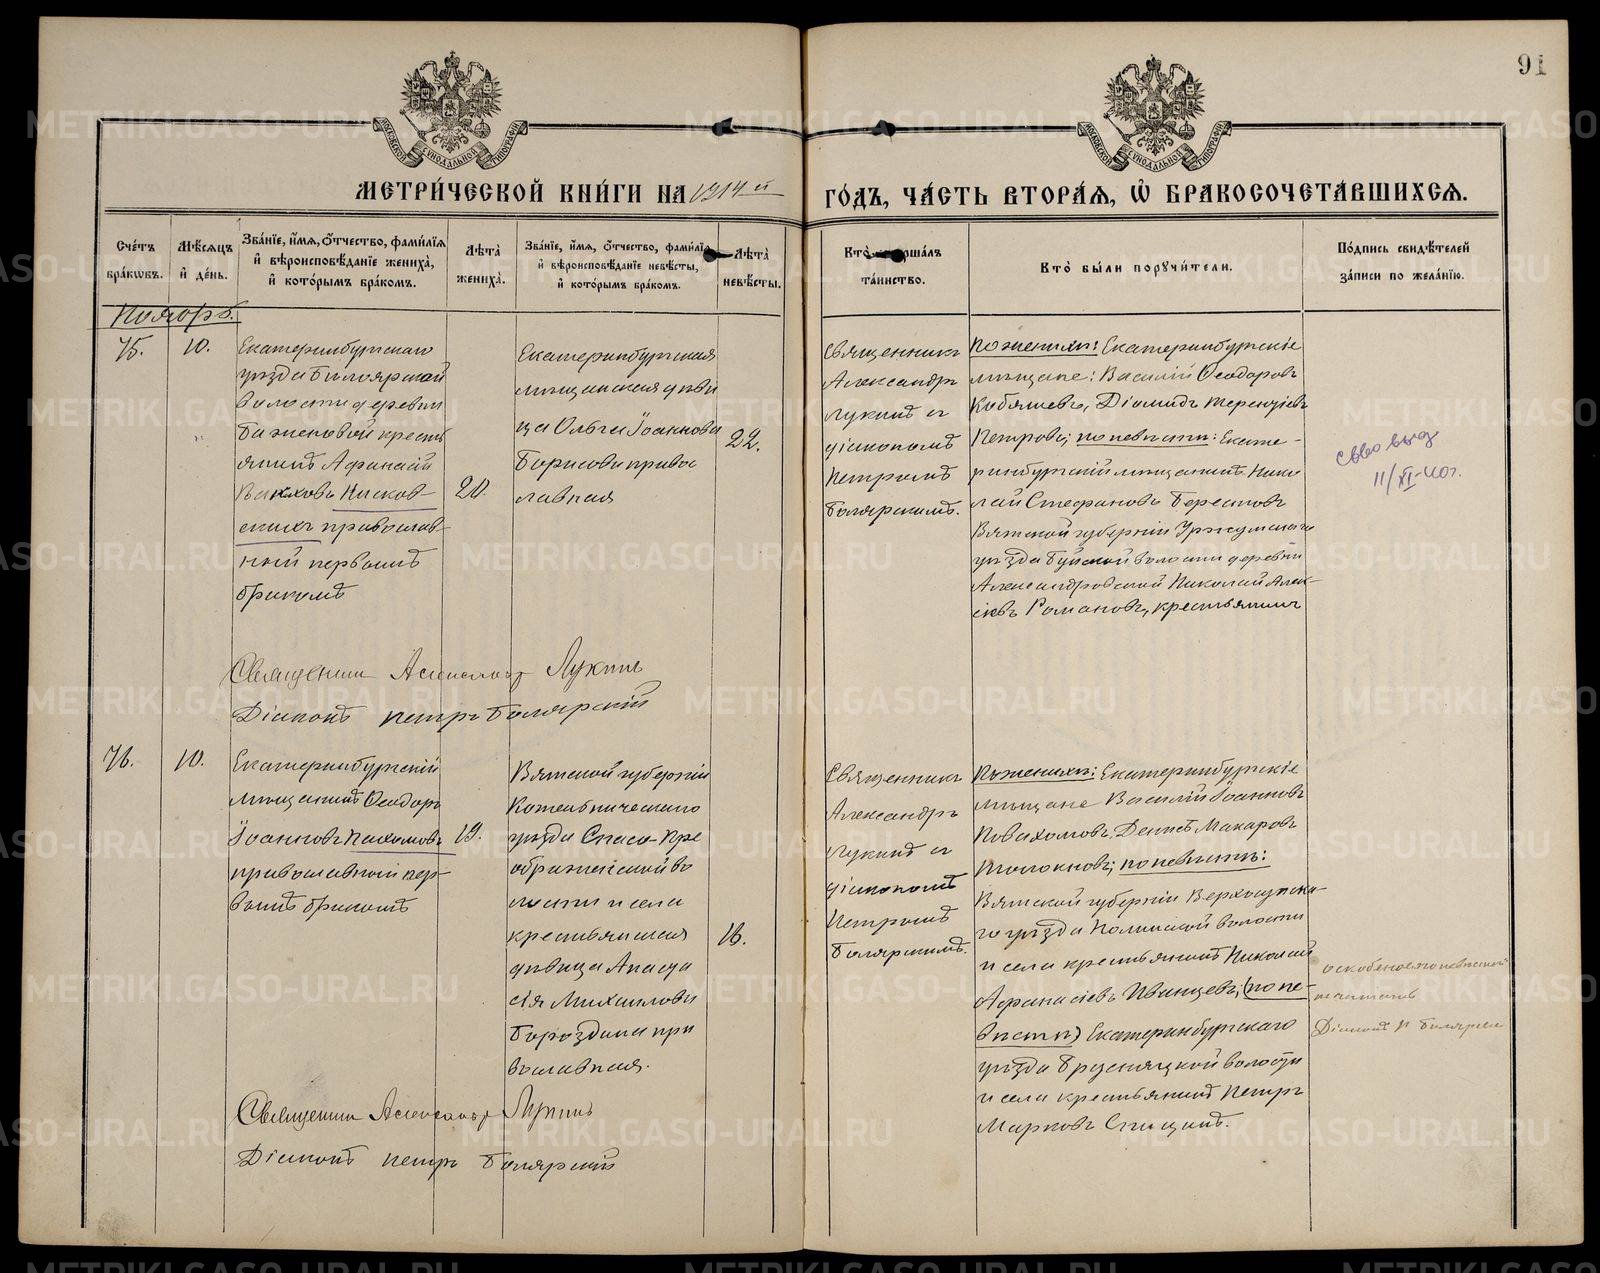 91
МЕТРИ́ЧЕСКОЙ КНИ́ГИ НА 1914 й ГО́ДЪ, ЧА́СТЬ ВТОРА́Я, Ѽ БРАКОСОЧЕТА́ВШИХСЯ.
Сче́тъ бра́кѡвъ.
Мѣ́сяцъ и҆ де́нь.
Зва́нїе, и҆́мя, ѻ҆́тчество, фами́лїя
и҆ вѣроисповѣ́данїе жениха̀,
и҆ кото́рымъ бра́комъ.
Лѣта̀ жениха̀.
Зва́нїе, и҆́мя, ѻ҆́тчество, фами́лїя
и҆ вѣроисповѣ́данїе невѣ́сты,
и҆ кото́рымъ бра́комъ.
Лѣта̀ невѣ́сты.
Кто̀ соверша́лъ та́инство.
Кто̀ бы́ли порꙋчи́тели.
По́дпись свидѣ́телей
за́писи по жела́нїю.
Ноябрь.
75.
10.
Екатеринбургскаго
уѣзда Бѣлоярской
волости деревни
Баженовой кресть
янинъ Аѳанасій
православ-
ный первымъ
бракомъ
20.
Екатеринбургская
мѣщанская дѣви
ца Ольга Іоаннова
Борисова правос
лавная
22.
Священникъ
Александръ
Лукинъ съ
діакономъ
Петромъ
Боярскимъ.
По женихѣ: Екатеринбургскіе
мѣщане: Василій Ѳеодоровъ
Кобяшевъ, Діомидъ Терентіевъ
Петровъ; по невѣстѣ: Екате-
ринбургскій мѣщанинъ Нико
лай Стефановъ Берестовъ
Вятской губерніи Уржумскаго
уѣзда Буйской волости деревни
Александровской Николай Алек-
сѣевъ Романовъ, крестьянинъ
11/XI
Священникъ Александръ Лукинъ
Діаконъ Петръ Боярскій
76.
10.
Екатеринбургскій
мѣщанинъ Ѳеодоръ
Іоанновъ Пахомовъ
православный пер-
вымъ бракомъ
19.
Вятской губерніи
Котельническаго
уѣзда Спасо-Пре
ображенской во
лости и села
крестьянская
дѣвица Анаста
сія Михаилова
Бороздина пра
вославная.
16.
Священникъ
Александръ
Лукинъ съ
діакономъ
Петромъ
Боярскимъ.
По женихѣ: Екатеринбургскіе
мѣщане Василій Іоанновъ
Денисъ Макаровъ
Толокновъ; по невѣстѣ:
Вятской губерніи
го уѣзда волости
и села крестьянинъ Николай
Аѳанасіевъ Иванцевъ; (по не-
вѣстѣ) Екатеринбургскаго
уѣзда Брусянской волости
и села крестьянинъ Петръ
Марковъ Спицинъ.
Діаконъ П. Боярскій
Священникъ Александръ Лукинъ
Діаконъ Петръ Боярскій
METRIKI.GASO-URAL.RU